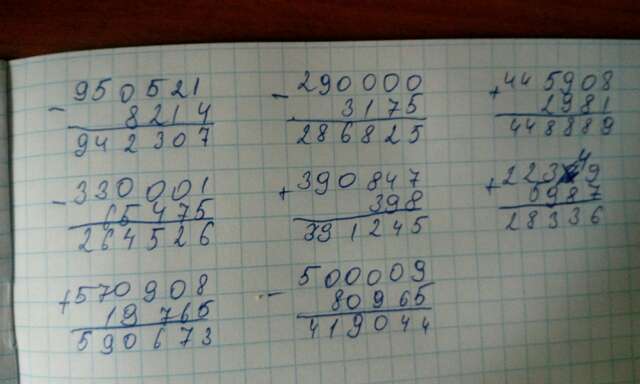 - 950521
8214
942307
- 290000
3175
286825
+ 445908
2981
448889
- 330001
65475
264526
+ 390847
398
391245
+ 22349
5987
28336
+ 570908
19765
590673
- 500009
80965
419044